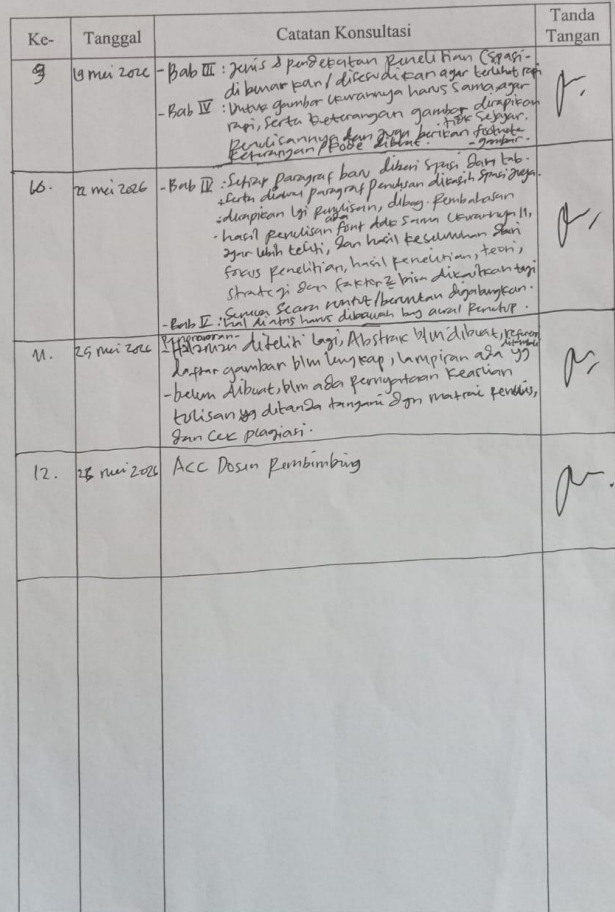 Ke- Tanggal Catatan Konsultasi Tanda Tangan
9 19 mei 2026 - Bab III : Jenis & pendekatan penelitian (spasi-
dibenarkan/disesuaikan agar terlihat rapi
- Bab IV : Untuk gambar ukurannya harus sama agar
rapi, serta keterangan gambar dirapikan
penulisannya dan juga berikan footnote
keterangan/kode dibuat. tidak sejajar. gambar.
10. 22 mei 2026 - Bab IV : Setiap paragraf baru diberi spasi dan tab.
Serta diawal paragraf penulisan dikasih spasi juga.
dirapikan lgi penulisan, dibag. Pembahasan
- hasil penulisan ada font tdk sama ukurannya 11,
agar lebih teliti, dan hasil keseluruhan dari
fokus penelitian, hasil penelitian, teori,
strategi dan faktor2 bisa dikaitkan lagi
Semua secara runtut/berurutan digabungkan.
- Bab V : hal diatas harus dibawah bag awal Penutup.
11. 25 mei 2026 Halaman diteliti lagi, Abstrak blm dibuat,
daftar gambar blm lengkap, lampiran ada yg
- belum dibuat, blm ada pernyataan keaslian
tulisan yg ditanda tangani dgn matrai penulis,
dan cek plagiasi.
12. 28 mei 2026 ACC Dosen Pembimbing